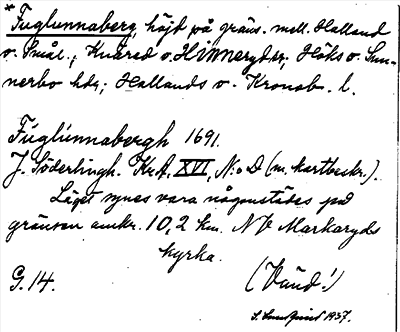 * Fuglunnaberg, höjd på gräns. mell. Halland
o. Smål.; Knäred o. Hinneryds sr; Höks o. Sun-
nerbo hdr; Hallands o. Kronob. l.
Fúglúnnabergh 1691.
J. Söderlingh. Kr. A, XVI, N:o D (m. kartbeskr.).
Läget synes vara någonstädes på
gränsen omkr. 10,2 km. NV Markaryds
kyrka.
G. 14.
(Vänd!)
S. Sundquist 1937.